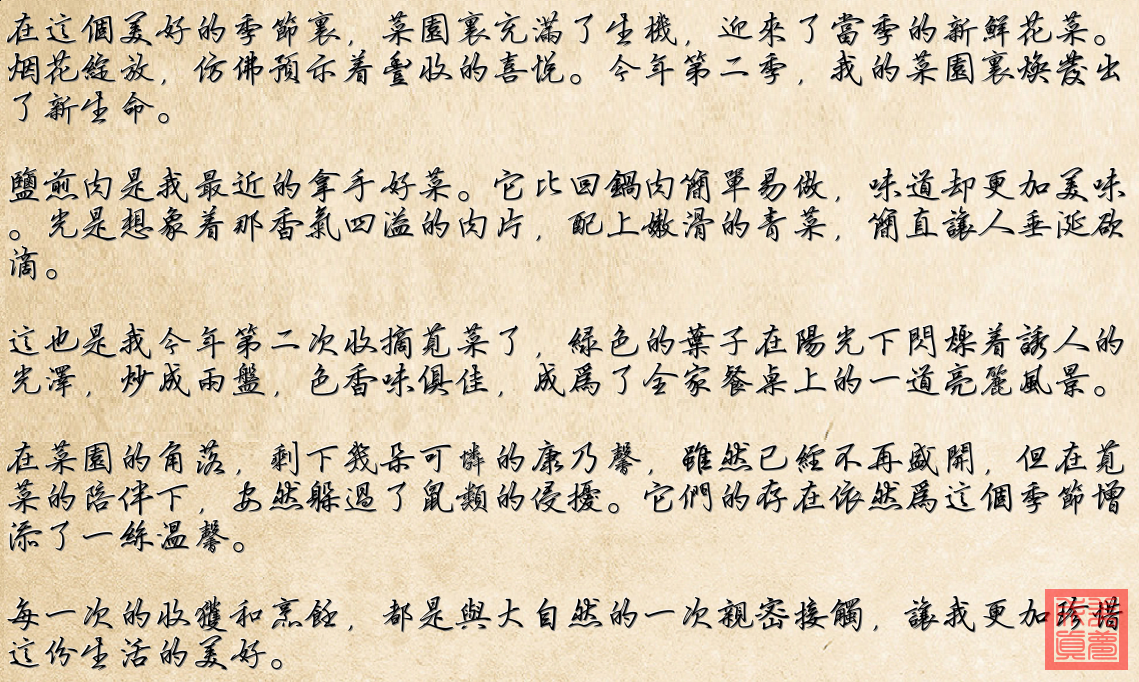 在這個美好的季節裏，菜園裏充滿了生機，迎來了當季的新鮮花菜。
烟花綻放，仿佛預示着豐收的喜悅。今年第二季，我的菜園裏煥發出
了新生命。
鹽煎肉是我最近的拿手好菜。它比回鍋肉簡單易做，味道却更加美味
。光是想象着那香氣四溢的肉片，配上嫩滑的青菜，簡直讓人垂涎欲
滴。
這也是我今年第二次收摘莧菜了，綠色的葉子在陽光下閃爍着誘人的
光澤，炒成兩盤，色香味俱佳，成爲了全家餐桌上的一道亮麗風景。
在菜園的角落，剩下幾朵可憐的康乃馨，雖然已經不再盛開，但在莧
菜的陪伴下，安然躲過了鼠類的侵擾。它們的存在依然爲這個季節增
添了一絲溫馨。
每一次的收獲和烹飪，都是與大自然的一次親密接觸，讓我更加珍惜
這份生活的美好。